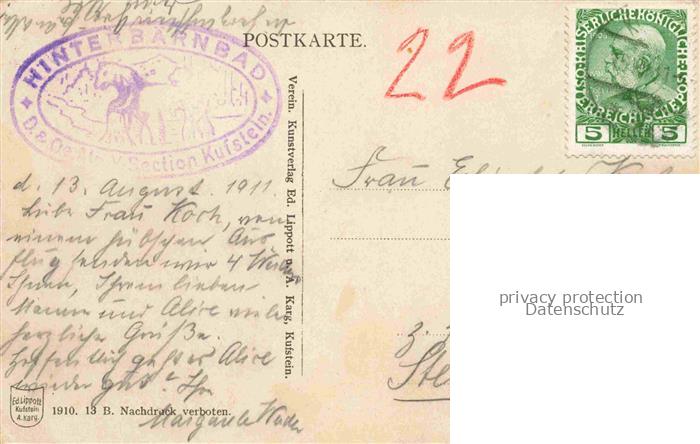 POSTKARTE.
22
HINTERBÄRNBAD
D. & Oe. Alp. V. Section Kufstein.
KAISERLICHE KÖNIGLICHE
ÖSTERREICHISCHE POST
5 HELLER 5
d. 13. August. 1911
Liebe Frau Koch, von
einem hübschen Aus
flug senden wir 4
Ihnen, Ihrem lieben
Manne und Alice viele
herzliche Grüße.
Hoffentlich geht es Alice
wieder gut? Ihre
Margarete
Frau
Verein. Kunstverlag Ed. Lippott u. A. Karg, Kufstein.
Ed. Lippott
Kufstein
A. Karg.
1910. 13 B. Nachdruck verboten.
privacy protection
Datenschutz